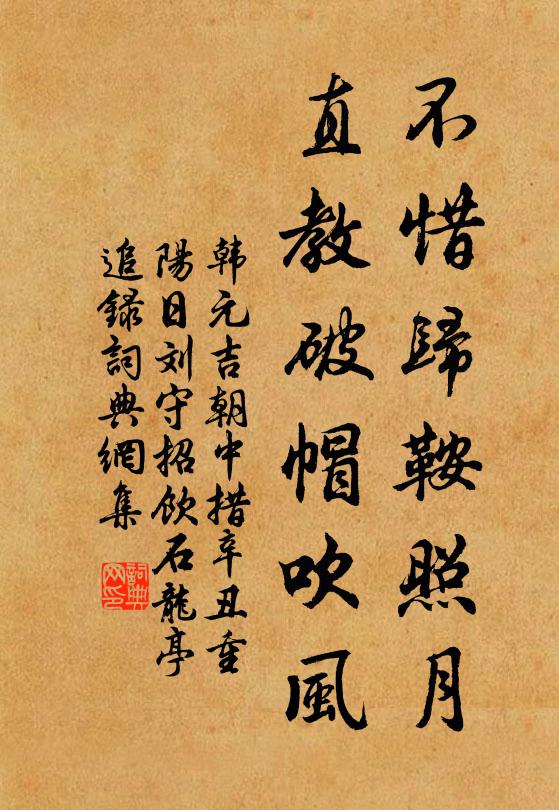 不惜歸鞍照月
直教破帽吹風
韩元吉朝中措辛丑重
陽日刘守招飲石龍亭
追録詞典網集
詞典网印